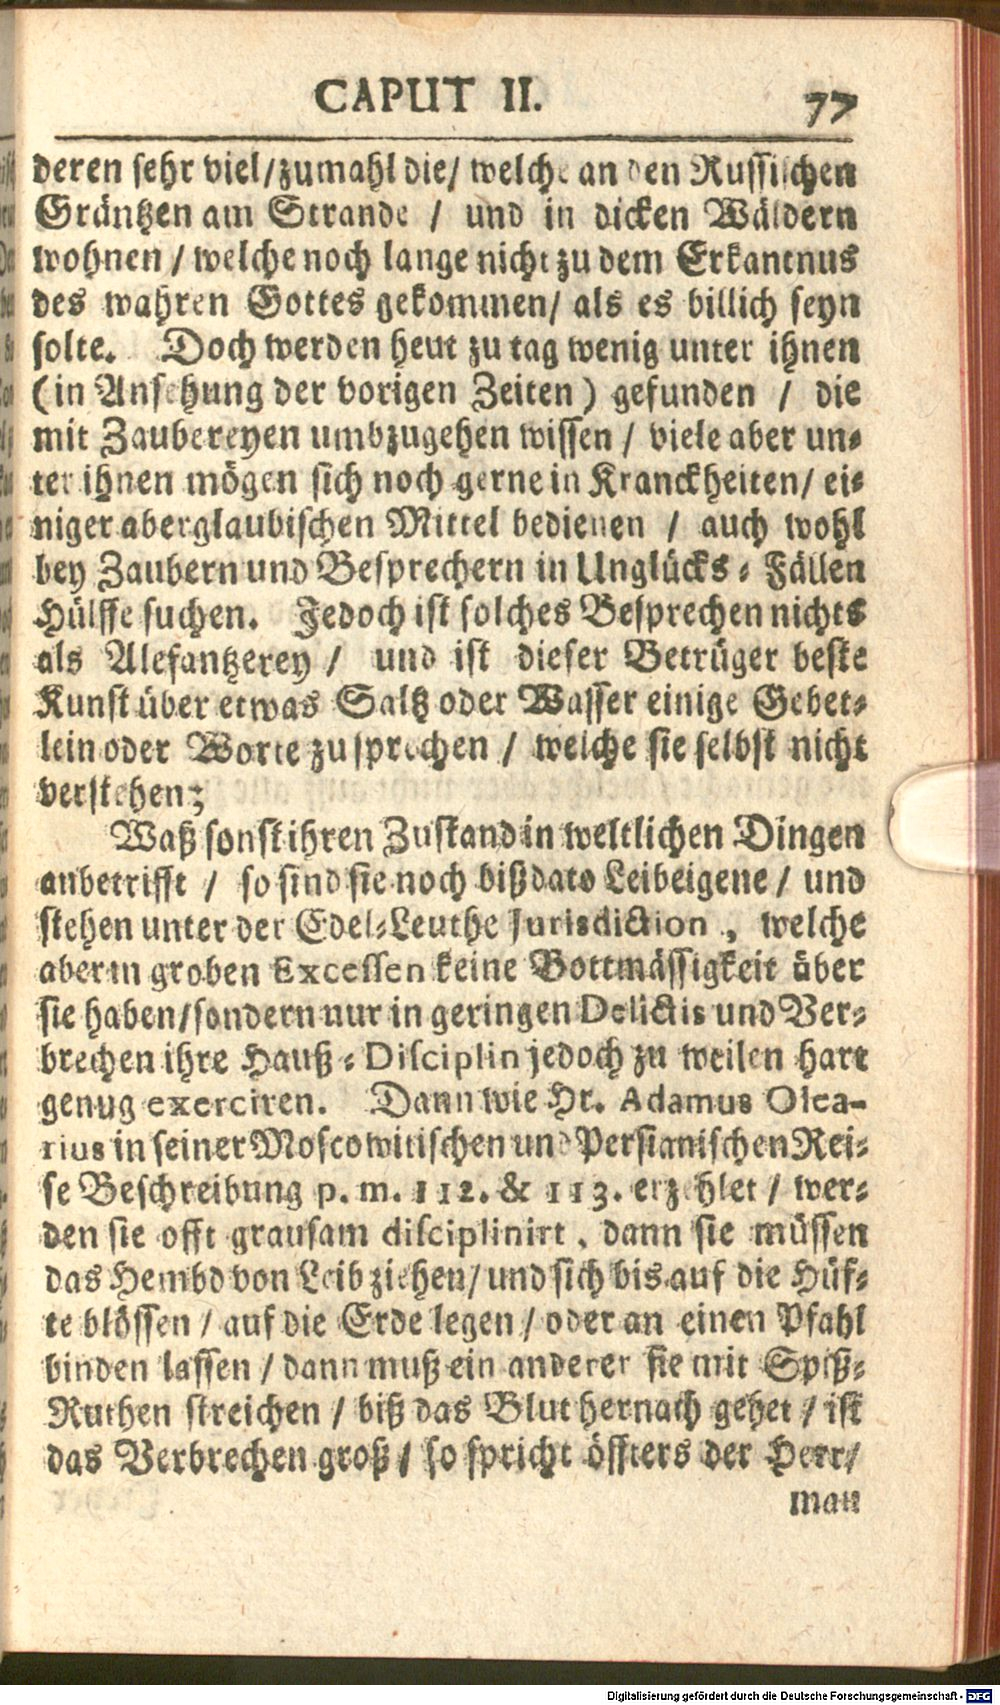 CAPUT II. 77
deren sehr viel/zumahl die/ welche an den Russischen
Gräntzen am Strande / und in dicken Wäldern
wohnen / welche noch lange nicht zu dem Erkantnus
des wahren Gottes gekommen/ als es billich seyn
solte. Doch werden heut zu tag wenig unter ihnen
(in Ansehung der vorigen Zeiten) gefunden / die
mit Zaubereyen umbzugehen wissen / viele aber un-
ter ihnen mögen sich noch gerne in Kranckheiten/ ei-
niger aberglaubischen Mittel bedienen / auch wohl
bey Zaubern und Besprechern in Unglücks-Fällen
Hülffe suchen. Jedoch ist solches Besprechen nichts
als Alefantzerey / und ist dieser Betrüger beste
Kunst über etwas Saltz oder Wasser einige Gebet-
lein oder Worte zu sprechen / welche sie selbst nicht
verstehen;
Waß sonst ihren Zustand in weltlichen Dingen
anbetrifft / so sind sie noch biß dato Leibeigene / und
stehen unter der Edel-Leuthe Jurisdiction, welche
aber in groben Excessen keine Bottmässigkeit über
sie haben/sondern nur in geringen Delictis und Ver-
brechen ihre Hauß-Disciplin jedoch zu weilen hart
genug exerciren. Dann wie Hr. Adamus Olea-
rius in seiner Moscowitischen und Persianischen Rei-
se Beschreibung p. m. 112. & 113. erzehlet / wer-
den sie offt grausam disciplinirt, dann sie müssen
das Hembd von Leib ziehen/ und sich bis auf die Hüf-
te blössen / auf die Erde legen / oder an einen Pfahl
binden lassen / dann muß ein anderer sie mit Spiß-
Ruthen streichen / biß das Blut hernach gehet / ist
das Verbrechen groß / so spricht öffters der Herr/
man
Digitalisierung gefördert durch die Deutsche Forschungsgemeinschaft - DFG